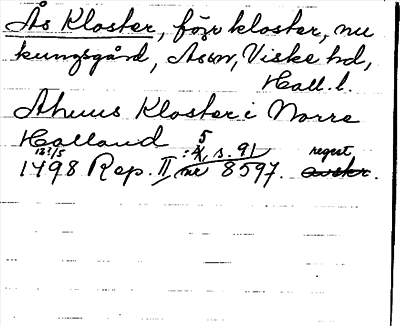 Ås Kloster, förr kloster, nu
kungsgård, Assn, Viske hd,
Hall. l.
Ahuus Kloster i Norre
Halland 5
12?/5 :4, s. 91 regest
1498 Rep. II nr 8597. avskr.